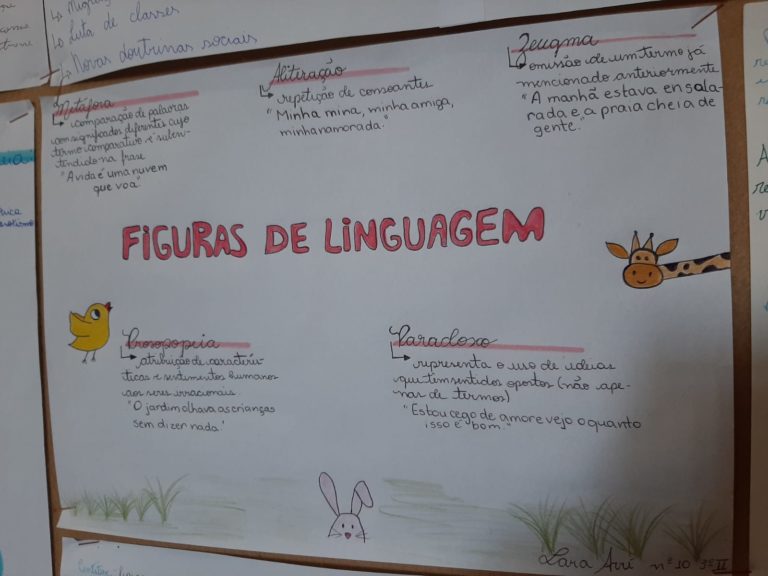 ↳ Luta de classes
↳ Novas doutrinas sociais
Metáfora
↳ comparação de palavras
com significados diferentes cujo
termo comparativo é suben-
tendido na frase
"A vida é uma nuvem
que voa"
Aliteração
↳ repetição de consoantes
"Minha mina, minha amiga,
minha namorada."
Zeugma
↳ omissão de um termo já
mencionado anteriormente
"A manhã estava ensola-
rada e a praia cheia de
gente."
FIGURAS DE LINGUAGEM
Prosopopeia
↳ atribuição de caracterís-
ticas e sentimentos humanos
aos seres irracionais.
"O jardim olhava as crianças
sem dizer nada."
Paradoxo
↳ representa o uso de ideias
que tem sentidos opostos (não ape-
nas de termos)
"Estou cego de amor e vejo o quanto
isso é bom."
Lara nº 10 3º II